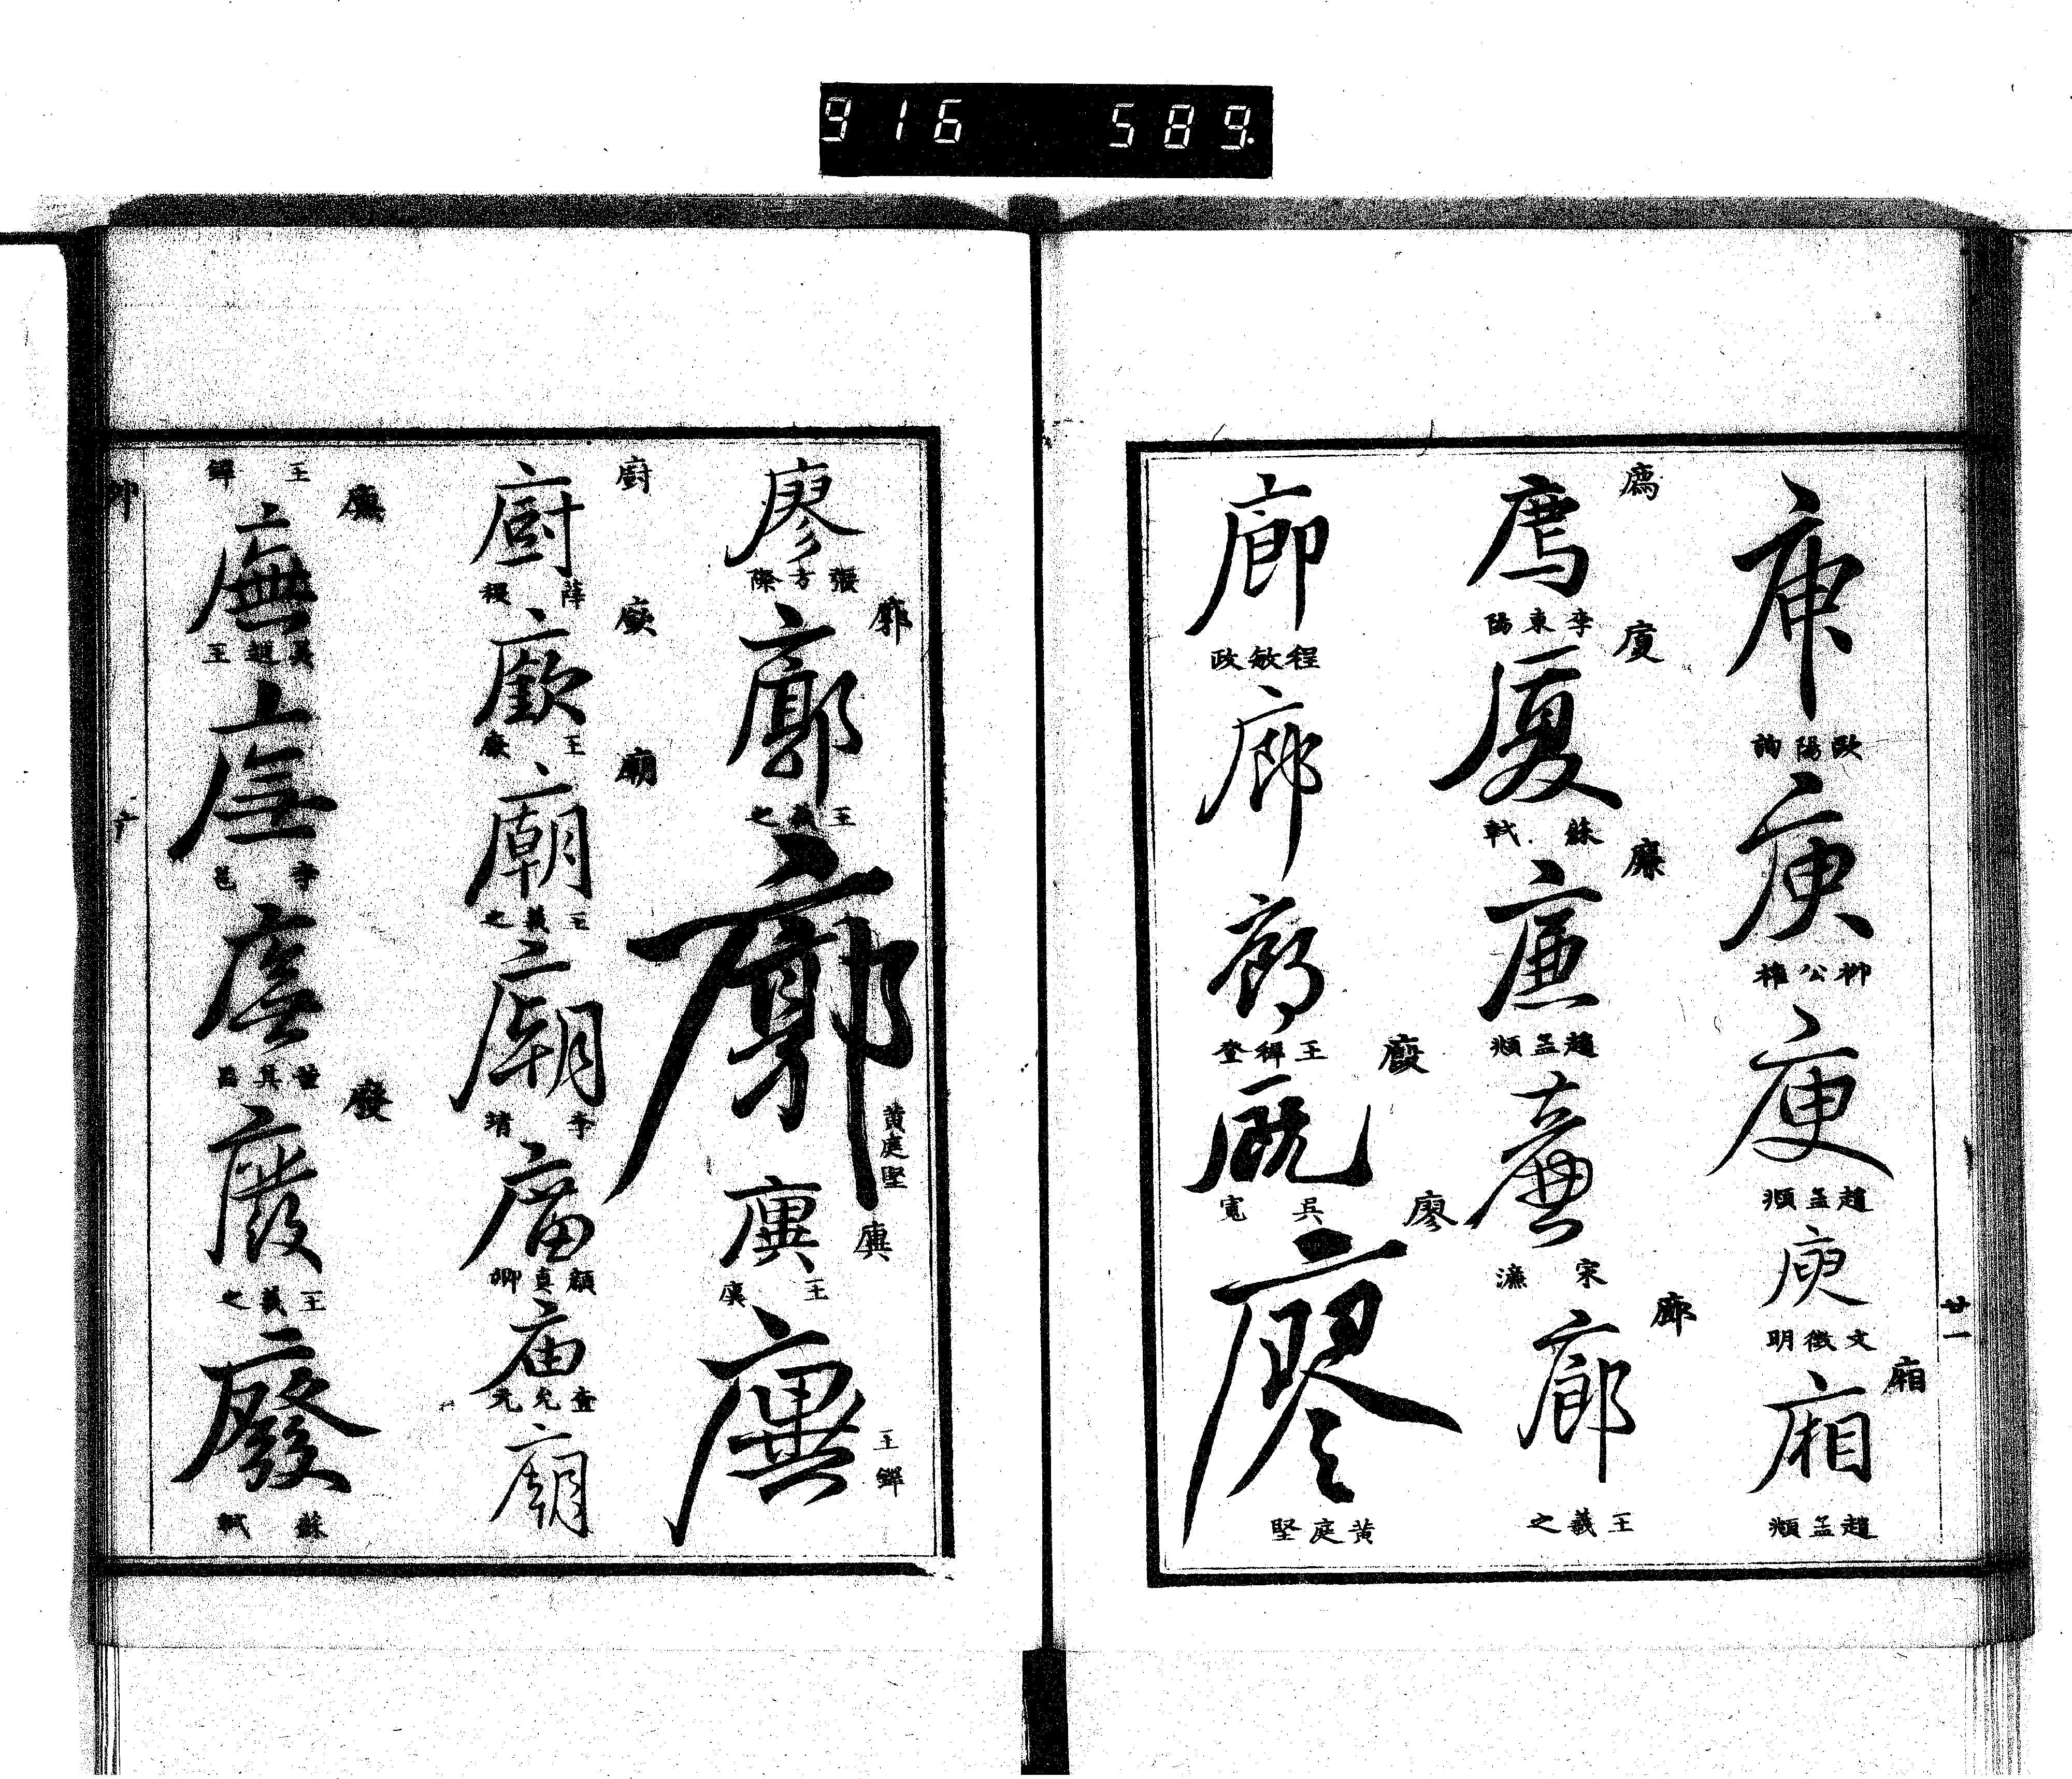 916 589.
庾
歐陽詢
庾
柳公權
庾
趙孟頫
庾
文徵明
廂
廂
趙孟頫
廿一
廌
廌
李東陽
廈
廈
蘇軾
廉
廉
趙孟頫
廉
宋濂
廊
廊
王羲之
廊
程敏政
廊
廊
王穉登
廄
廄
吳寬
廖
廖
黃庭堅
廖
張方
廓
廓
王羲之
廓
黃庭堅
廙
廙
王廙
廙
王鐸
廚
廚
薛稷
廞
廞
王廞
廟
廟
王羲之
廟
李靖
廟
顏真卿
庙
查允元
廟
王鐸
廡
廡
吳越王
廡
李邕
廡
董其昌
廢
廢
王羲之
廢
蘇軾